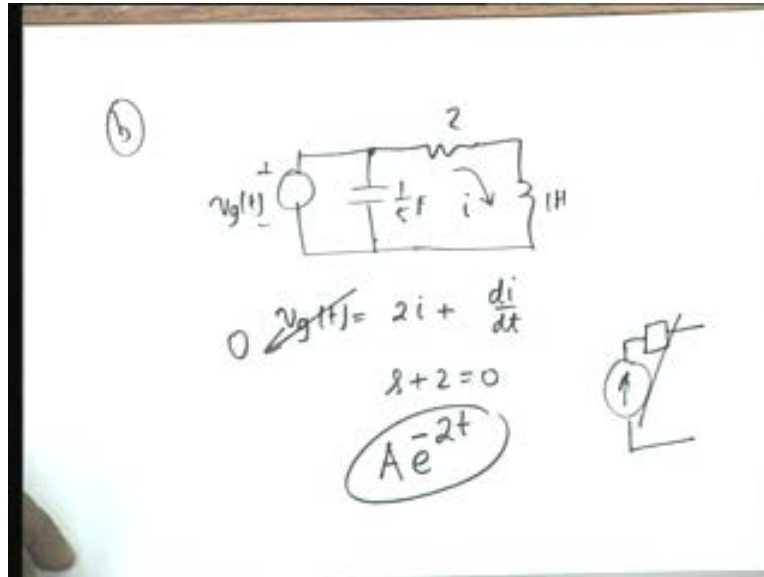 b
2
+
vg(t)
-
1/5 F
i
1H
0 vg(t) = 2i + di/dt
s+2=0
Ae^-2t